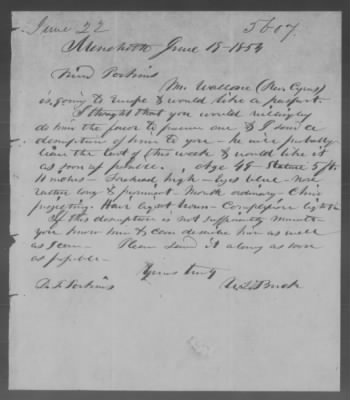 June 22 5607.
June 18-1853
Friend Perkins
Mr. Wallace (Rev Cyrus)
is going to Europe & would like a passport.
I thought that you would willingly
do him the favor to procure one & I send a
description of him to you - he will probably
leave the last of this week & would like it
as soon as possible. Age 48 - Stature 5 ft.
11 inches - Forehead, high - Eyes blue - Nose
rather long & prominent - Mouth ordinary - Chin
projecting. Hair light brown - Complexion light
If this description is not sufficiently minute
you know him & can describe him as well
as I can - Please send it along as soon
as possible -
Yours truly
Perkins